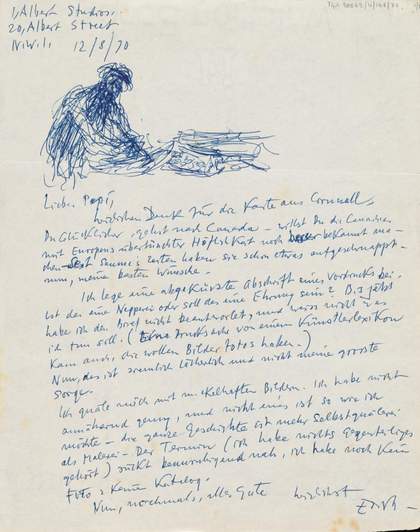 1, Albert Studios.
20, Albert Street
N.W.1. 12/8/70
Lieber Pepi,
herzlichen Dank für die Karte aus Cornwall.
Du Glücklicher, gehst nach Canada – willst Du die Canadier
mit Europens übertünchter Höflichkeit noch bekannt ma-
chen – Seit Seume's Zeiten haben sie schon etwas aufgeschnappt –
nun, meine besten Wünsche –
Ich lege eine abgekürzte Abschrift eines Vordrucks bei.
Ist das eine Nepperei oder soll das eine Ehrung sein? B. jetzt
habe ich den Brief nicht beantwortet, und weiss nicht was
ich tun soll. ( Drucksache von einem Künstlerlexikon
kam auch, die wollen Bilder Fotos haben.)
Nun, das ist ziemlich lächerlich und nicht meine grösste
Sorge.
Ich quäle mich mit m. ekelhaften Bildern. Ich habe nicht
annähernd genug, und nicht eines ist so wie ich
möchte – die ganze Geschichte ist mehr Selbstquälerei
als Malerei – Der Termin (ich habe nichts Gegenteiliges
gehört) rückt beunruhigend nah, ich habe noch kein
Foto & keinen Katalog.
Nun, nochmals, alles Gute herzlichst